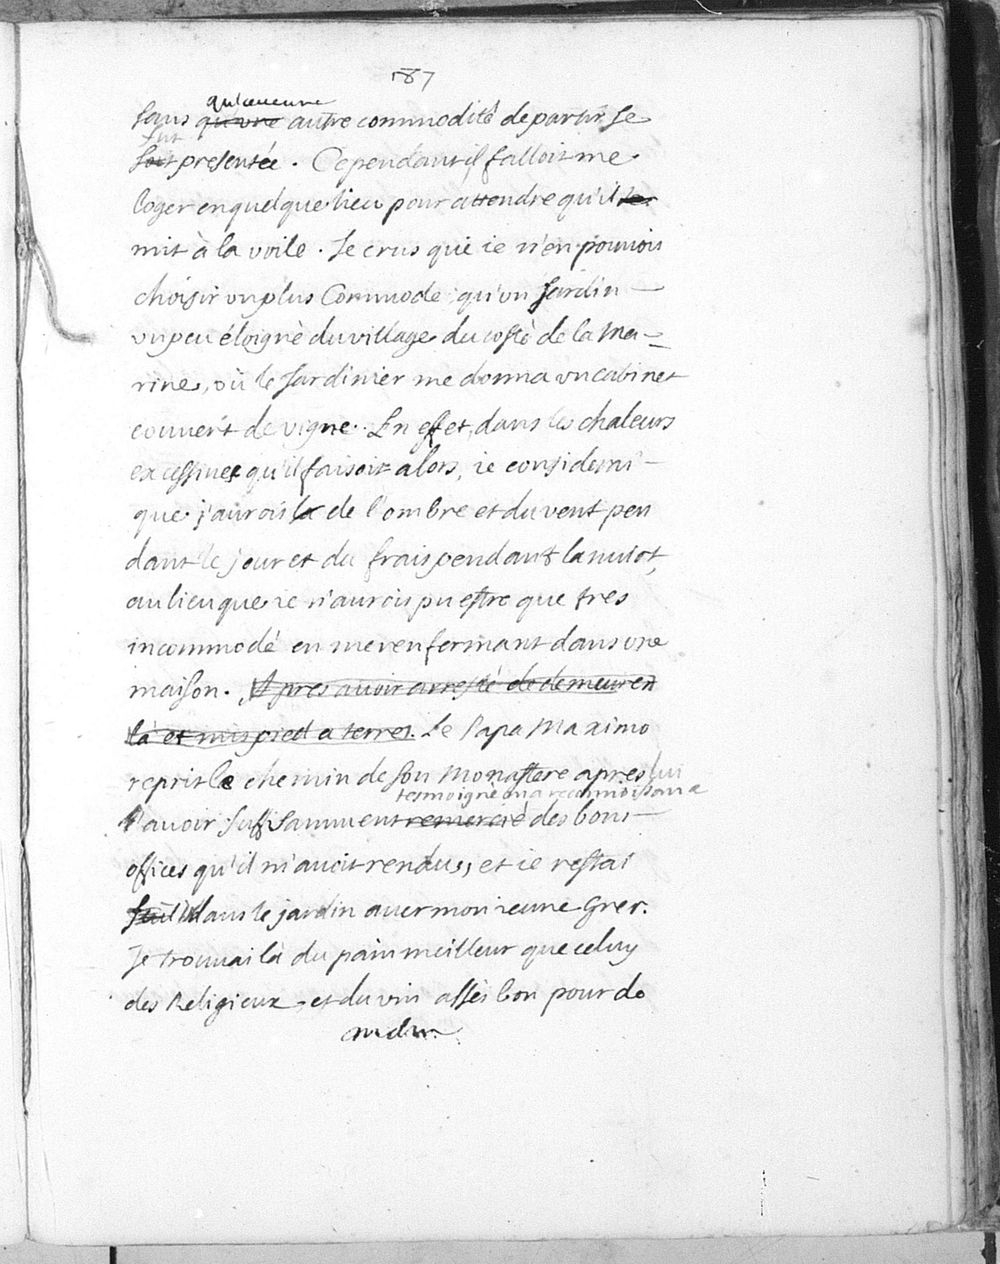 187
qu'aucune
sans qu'une autre commodité de partir se
fut
soit presentée. Cependant il falloit me
loger en quelque lieu pour attendre qu'il se
mit à la voile. Je crus que ie n'en pouvois
choisir vn plus Commode qu'vn Jardin
vn peu éloigné du village du costé de la Ma-
rine, où le Jardinier me donna vn cabinet
couvert de vigne. En effet, dans les chaleurs
excessives qu'il faisoit alors, ie considerai
que j'aurois là de l'ombre et du vent pen
dant le jour et du frais pendant la nuict,
au lieu que ie n'aurois pu estre que tres
incommodé en me renfermant dans vne
maison. Apres avoir arresté de demeurer
là et mis pied a terre. Le Papa Maximo
reprit le chemin de son Monastere apres lui
tesmoigné ma reconnoissance
l'avoir suffisamment remercié des bons
offices qu'il m'avoit rendus, et ie restai
dans le jardin avec mon ieune Grec.
Je trouvai là du pain meilleur que celuy
des Religieux, et du vin assés bon pour de